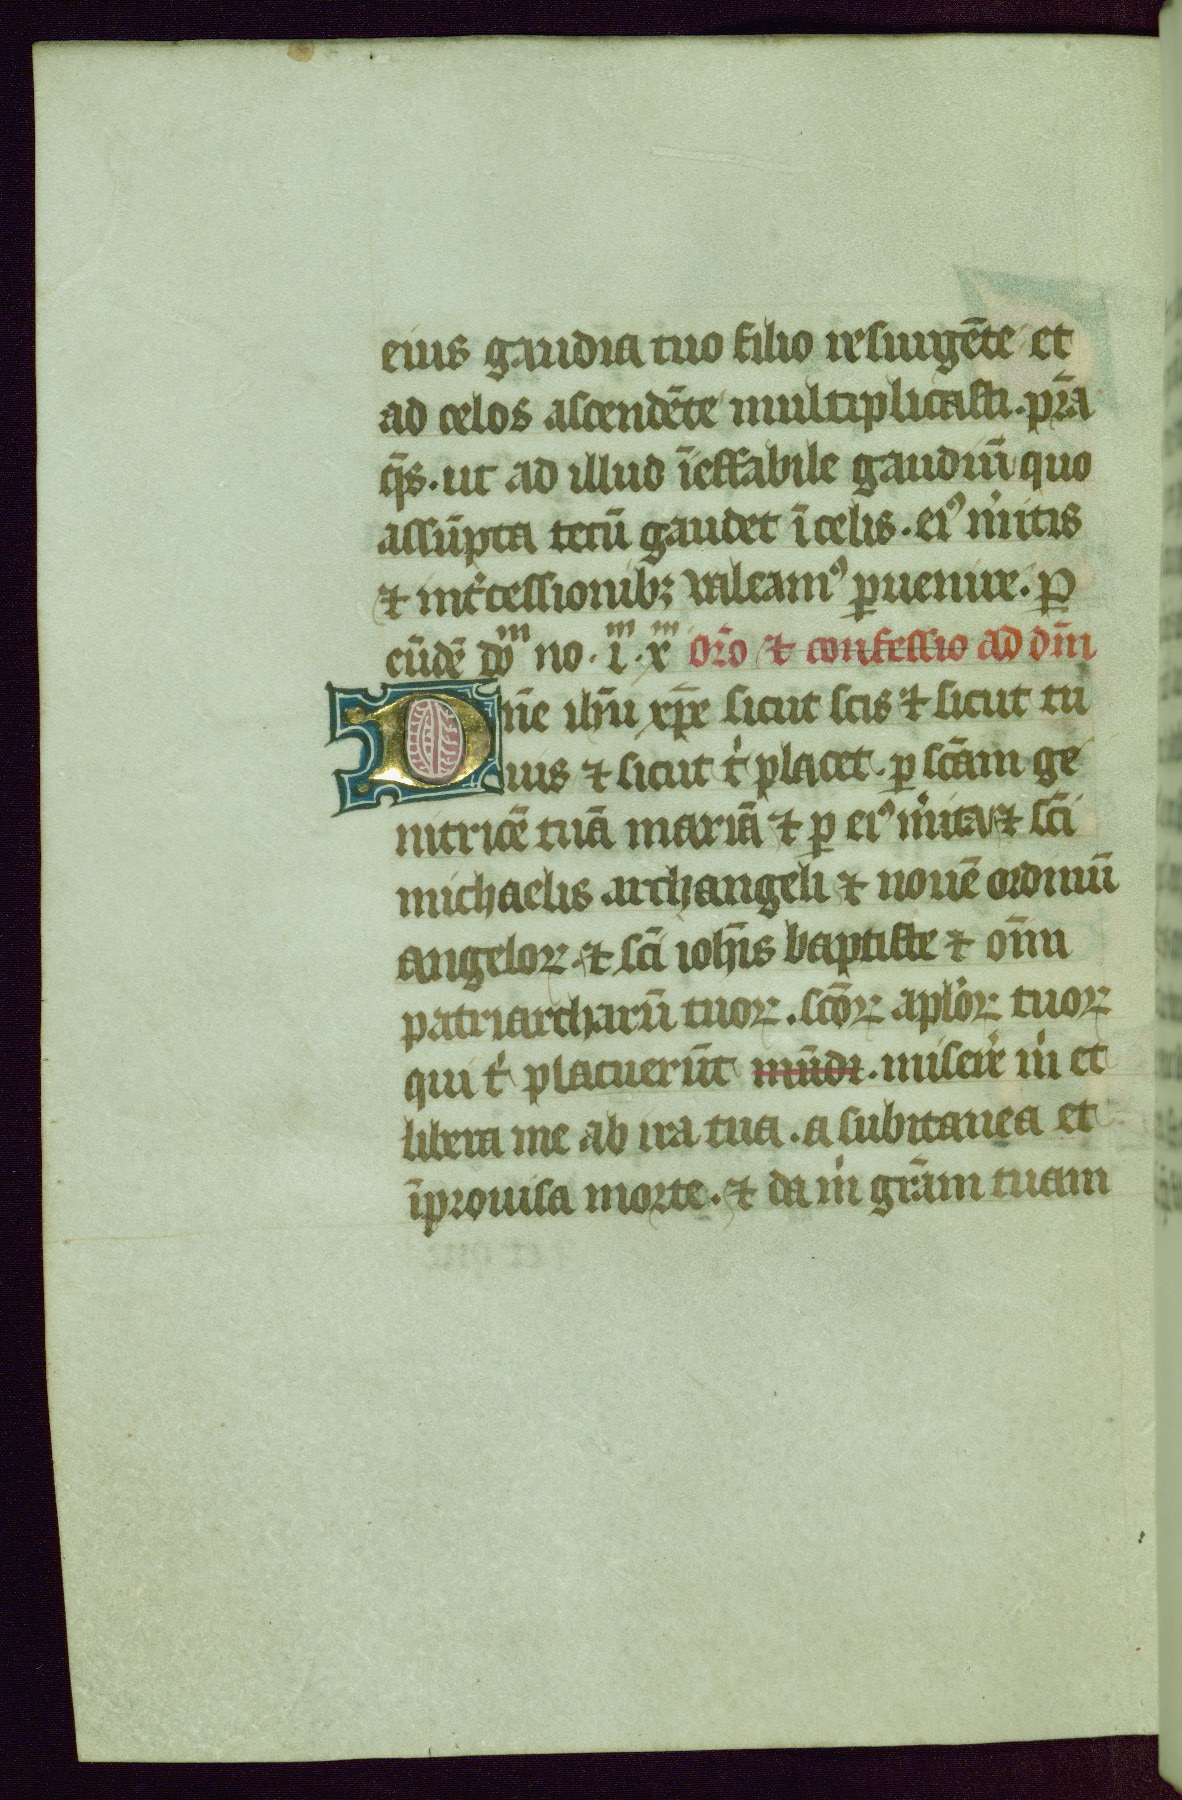 eius gaudia tuo filio resurgēte et
ad celos ascendēte multiplicasti. pr̄a
q̄s. ut ad illud īeffabile gaudiū quo
assūpta tecū gaudet ī celis. eiꝰ m̍itis
⁊ int̍cessionibꝫ valeamꝰ ꝑuenire. ꝑ
eūdē doᵐ no. iᵐ. xᵐ or̄o ⁊ confessio ad dn̄m
Dn̄e ihū xp̄e sicut scis ⁊ sicut tu
uis ⁊ sicut t̍ placet. ꝑ scām ge
nitricē tuā mariā ⁊ ꝑ eiꝰ m̍ita ⁊ sc̄i
michaelis archangeli ⁊ nouē ordinū
angeloꝝ. ⁊ sc̄i ioh̄is baptiste ⁊ om̄
patriarcharū tuoꝝ. sc̄oꝝ apl̍oꝝ tuoꝝ
qui t̍ placuerūt mūdi. miser̍e m̍ et
libera me ab ira tua. a subitanea et
īprouisa morte. ⁊ da m̍ gr̄am tuam